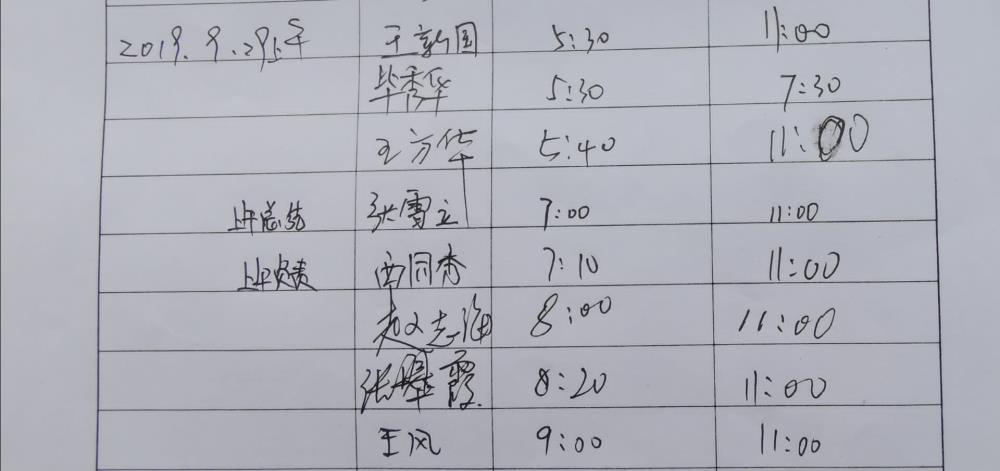 2019.9.29上午 王新国 5:30 11:00
毕秀华 5:30 7:30
王方华 5:40 11:00
上午总结 张雪立 7:00 11:00
上午负责 西同秀 7:10 11:00
赵志海 8:00 11:00
张翠霞 8:20 11:00
王风 9:00 11:00